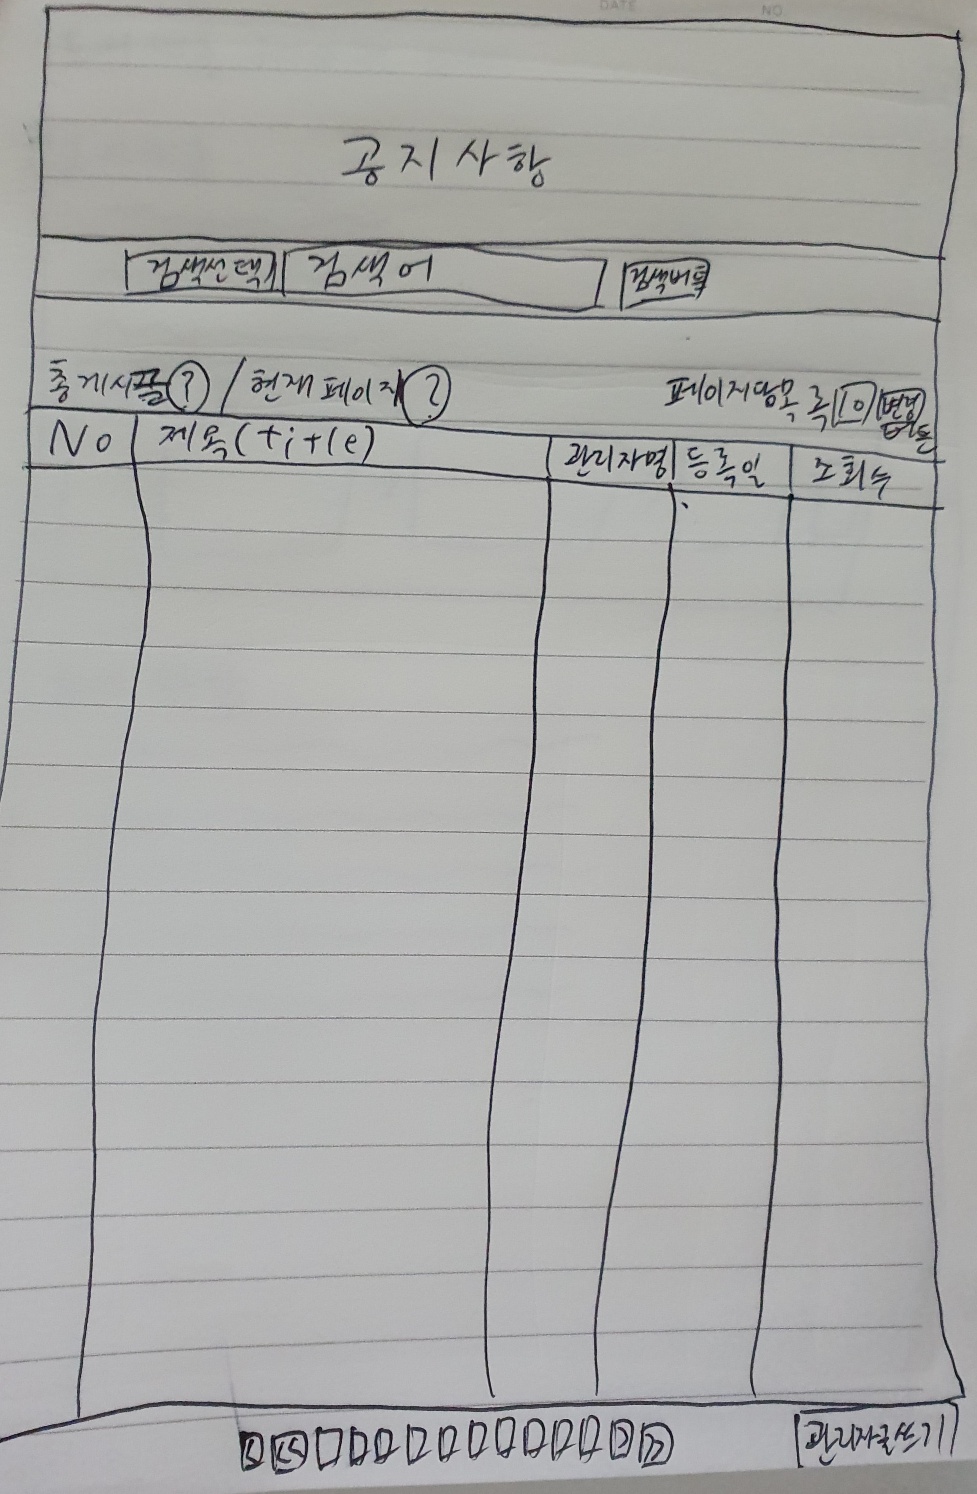 DATE NO
공지사항
검색선택 검색어 검색버튼
총게시글(?) / 현재페이지(?) 페이지당목록 10 변경
버튼
No 제목(title) 관리자명 등록일 조회수
관리자글쓰기